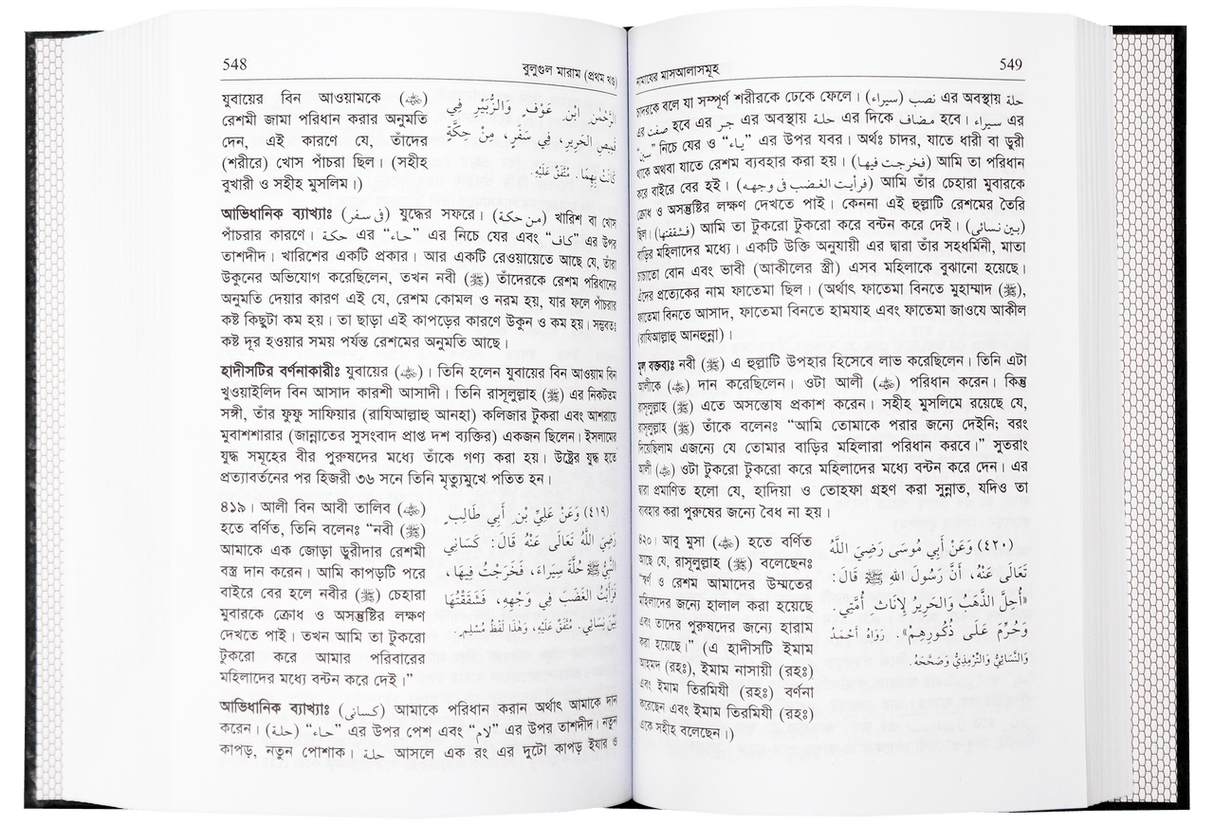 548
বুলুগুল মারাম (প্রথম খণ্ড)
যুবায়ের বিন আওয়ামকে (ﷺ)
রেশমী জামা পরিধান করার অনুমতি
দেন, এই কারণে যে, তাঁদের
(শরীরে) খোস পাঁচরা ছিল। (সহীহ
বুখারী ও সহীহ মুসলিম।)
الرَّحْمٰنِ ابْنِ عَوْفٍ وَالزُّبَيْرِ فِي
قَمِيصِ الْحَرِيرِ، فِي سَفَرٍ، مِنْ حِكَّةٍ
كَانَتْ بِهِمَا. مُتَّفَقٌ عَلَيْهِ.
আভিধানিক ব্যাখ্যাঃ (فى سفر) যুদ্ধের সফরে। (من حكة) খারিশ বা খোস
পাঁচরার কারণে। حكة এর “حاء” এর নিচে যের এবং “كاف” এর উপর
তাশদীদ। খারিশের একটি প্রকার। আর একটি রেওয়ায়েতে আছে যে, তাঁরা
উকুনের অভিযোগ করেছিলেন, তখন নবী (ﷺ) তাঁদেরকে রেশম পরিধানের
অনুমতি দেয়ার কারণ এই যে, রেশম কোমল ও নরম হয়, যার ফলে পাঁচরার
কষ্ট কিছুটা কম হয়। তা ছাড়া এই কাপড়ের কারণে উকুন ও কম হয়। সম্ভবতঃ
কষ্ট দূর হওয়ার সময় পর্যন্ত রেশমের অনুমতি আছে।
হাদীসটির বর্ণনাকারীঃ যুবায়ের (ﷺ)। তিনি হলেন যুবায়ের বিন আওয়াম বিন
খুওয়াইলিদ বিন আসাদ কারশী আসাদী। তিনি রাসূলুল্লাহ (ﷺ) এর নিকটতম
সঙ্গী, তাঁর ফুফু সাফিয়ার (রাযিআল্লাহু আনহা) কলিজার টুকরা এবং আশরায়ে
মুবাশশারার (জান্নাতের সুসংবাদ প্রাপ্ত দশ ব্যক্তির) একজন ছিলেন। ইসলামের
যুদ্ধ সমূহের বীর পুরুষদের মধ্যে তাঁকে গণ্য করা হয়। উষ্ট্রের যুদ্ধ হতে
প্রত্যাবর্তনের পর হিজরী ৩৬ সনে তিনি মৃত্যুমুখে পতিত হন।
৪১৯। আলী বিন আবী তালিব (ﷺ)
হতে বর্ণিত, তিনি বলেনঃ “নবী (ﷺ)
আমাকে এক জোড়া ডুরীদার রেশমী
বস্ত্র দান করেন। আমি কাপড়টি পরে
বাইরে বের হলে নবীর (ﷺ) চেহারা
মুবারকে ক্রোধ ও অসন্তুষ্টির লক্ষণ
দেখতে পাই। তখন আমি তা টুকরো
টুকরো করে আমার পরিবারের
মহিলাদের মধ্যে বন্টন করে দেই।”
(٤١٩) وَعَنْ عَلِيِّ بْنِ أَبِي طَالِبٍ
رَضِيَ اللَّهُ تَعَالَى عَنْهُ قَالَ: كَسَانِي
النَّبِيُّ ﷺ حُلَّةً سِيَرَاءَ، فَخَرَجْتُ فِيهَا،
فَرَأَيْتُ الْغَضَبَ فِي وَجْهِهِ، فَشَقَقْتُهَا
بَيْنَ نِسَائِي. مُتَّفَقٌ عَلَيْهِ، وَهٰذَا لَفْظُ مُسْلِمٍ.
আভিধানিক ব্যাখ্যাঃ (كسانى) আমাকে পরিধান করান অর্থাৎ আমাকে দান
করেন। (حلة) “حاء” এর উপর পেশ এবং “لام” এর উপর তাশদীদ। নতুন
কাপড়, নতুন পোশাক। حلة আসলে এক রং এর দুটো কাপড় ইযার ও
নামাযের মাসআলাসমূহ
549
চাদরকে বলে যা সম্পূর্ণ শরীরকে ঢেকে ফেলে। (سيراء) نصب এর অবস্থায় حلة
এর صفت হবে এর جر এর অবস্থায় حلة এর দিকে مضاف হবে। سيراء এর
“سين” নিচে যের ও “ياء” এর উপর যবর। অর্থঃ চাদর, যাতে ধারী বা ডুরী
থাকে অথবা যাতে রেশম ব্যবহার করা হয়। (فخرجت فيها) আমি তা পরিধান
করে বাইরে বের হই। (فرأيت الغضب فى وجهه) আমি তাঁর চেহারা মুবারকে
ক্রোধ ও অসন্তুষ্টির লক্ষণ দেখতে পাই। কেননা এই হুল্লাটি রেশমের তৈরি
ছিল। (فشققتها) আমি তা টুকরো টুকরো করে বন্টন করে দেই। (بين نسائى)
বাড়ির মহিলাদের মধ্যে। একটি উক্তি অনুযায়ী এর দ্বারা তাঁর সহধর্মিনী, মাতা
চাচাতো বোন এবং ভাবী (আকীলের স্ত্রী) এসব মহিলাকে বুঝানো হয়েছে।
এঁদের প্রত্যেকের নাম ফাতেমা ছিল। (অর্থাৎ ফাতেমা বিনতে মুহাম্মাদ (ﷺ),
ফাতেমা বিনতে আসাদ, ফাতেমা বিনতে হামযাহ এবং ফাতেমা জাওযে আকীল
(রাযিআল্লাহু আনহুন্না)।
মূল বক্তব্যঃ নবী (ﷺ) এ হুল্লাটি উপহার হিসেবে লাভ করেছিলেন। তিনি এটা
আলীকে (ﷺ) দান করেছিলেন। ওটা আলী (ﷺ) পরিধান করেন। কিন্তু
রাসূলুল্লাহ (ﷺ) এতে অসন্তোষ প্রকাশ করেন। সহীহ মুসলিমে রয়েছে যে,
রাসূলুল্লাহ (ﷺ) তাঁকে বলেনঃ “আমি তোমাকে পরার জন্যে দেইনি; বরং
দিয়েছিলাম এজন্যে যে তোমার বাড়ির মহিলারা পরিধান করবে।” সুতরাং
আলী (ﷺ) ওটা টুকরো টুকরো করে মহিলাদের মধ্যে বন্টন করে দেন। এর
দ্বারা প্রমাণিত হলো যে, হাদিয়া ও তোহফা গ্রহণ করা সুন্নাত, যদিও তা
ব্যবহার করা পুরুষের জন্যে বৈধ না হয়।
৪২০। আবু মুসা (ﷺ) হতে বর্ণিত
আছে যে, রাসূলুল্লাহ (ﷺ) বলেছেনঃ
“স্বর্ণ ও রেশম আমাদের উম্মতের
মহিলাদের জন্যে হালাল করা হয়েছে
এবং তাদের পুরুষদের জন্যে হারাম
করা হয়েছে।” (এ হাদীসটি ইমাম
আহমাদ (রহঃ), ইমাম নাসায়ী (রহঃ)
এবং ইমাম তিরমিযী (রহঃ) বর্ণনা
করেছেন এবং ইমাম তিরমিযী (রহঃ)
একে সহীহ বলেছেন।)
(٤٢٠) وَعَنْ أَبِي مُوسَى رَضِيَ اللَّهُ
تَعَالَى عَنْهُ، أَنَّ رَسُولَ اللهِ ﷺ قَالَ:
«أُحِلَّ الذَّهَبُ وَالْحَرِيرُ لِإِنَاثِ أُمَّتِي.
وَحُرِّمَ عَلَى ذُكُورِهِمْ». رَوَاهُ أَحْمَدُ
وَالنَّسَائِيُّ وَالتِّرْمِذِيُّ وَصَحَّحَهُ.